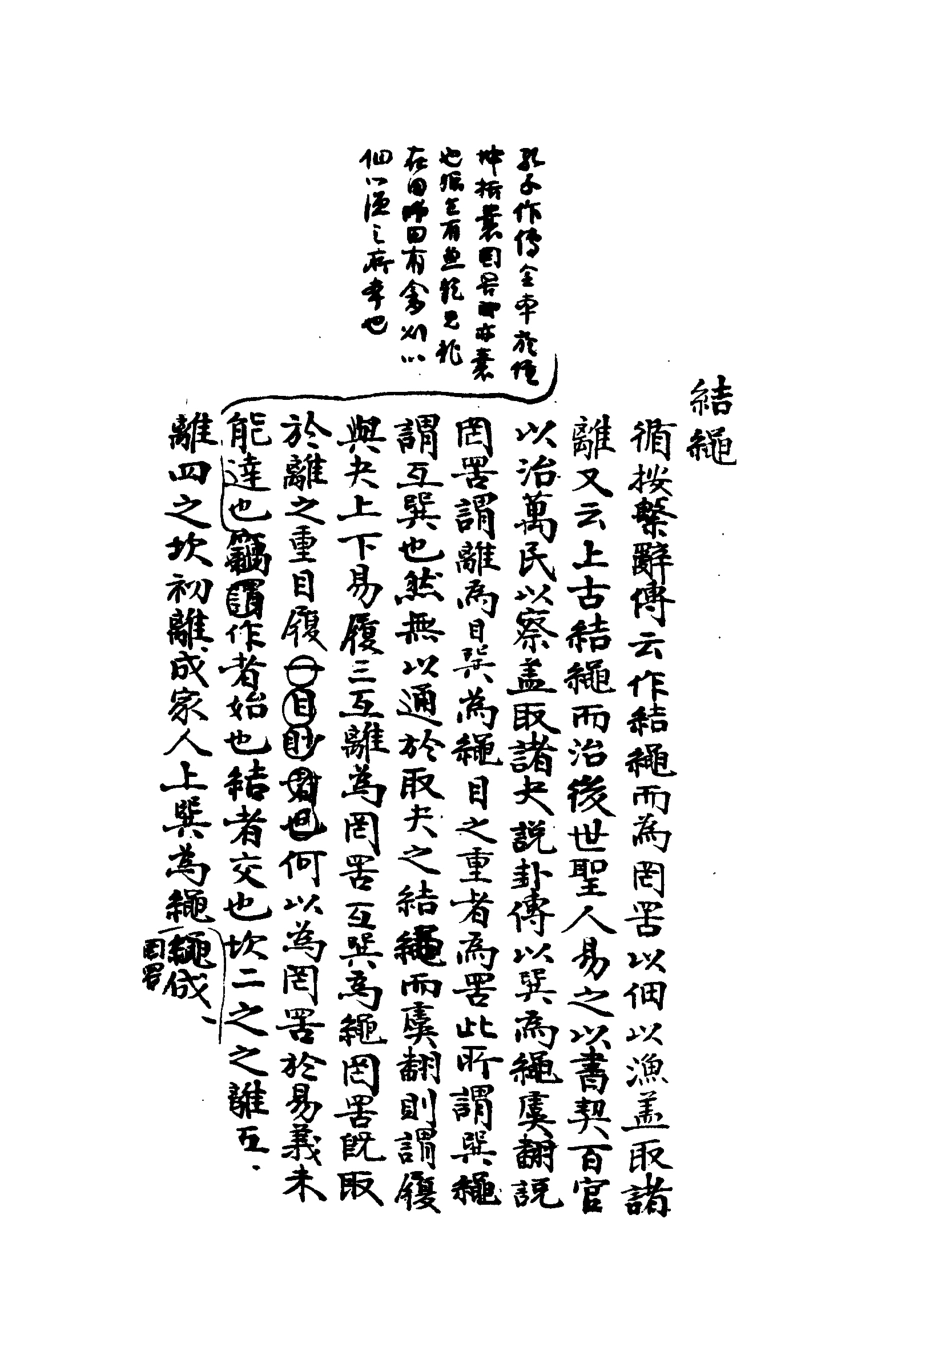 結繩
循按繫辭傳云作結繩而為罔罟以佃以漁盖取諸
離又云上古結繩而治後世聖人易之以書契百官
以治萬民以察盖取諸夬説卦傳以巽為繩虞翻説
罔罟謂離為目巽為繩目之重者為罟此所謂巽繩
謂互巽也然無以通於取夬之結繩而虞翻則謂履
與夬上下易履三互離為罔罟互巽為繩罔罟既取
於離之重目履一目何以為罔罟於易義未
能達也竊謂作者始也結者交也坎二之之離互
離四之坎初離成家人上巽為繩繩成
罔罟
孔子作傳全本於
坤括囊罔罟即亦囊
也有魚龍見龍
在田師田有禽則以
佃以漁之所本也